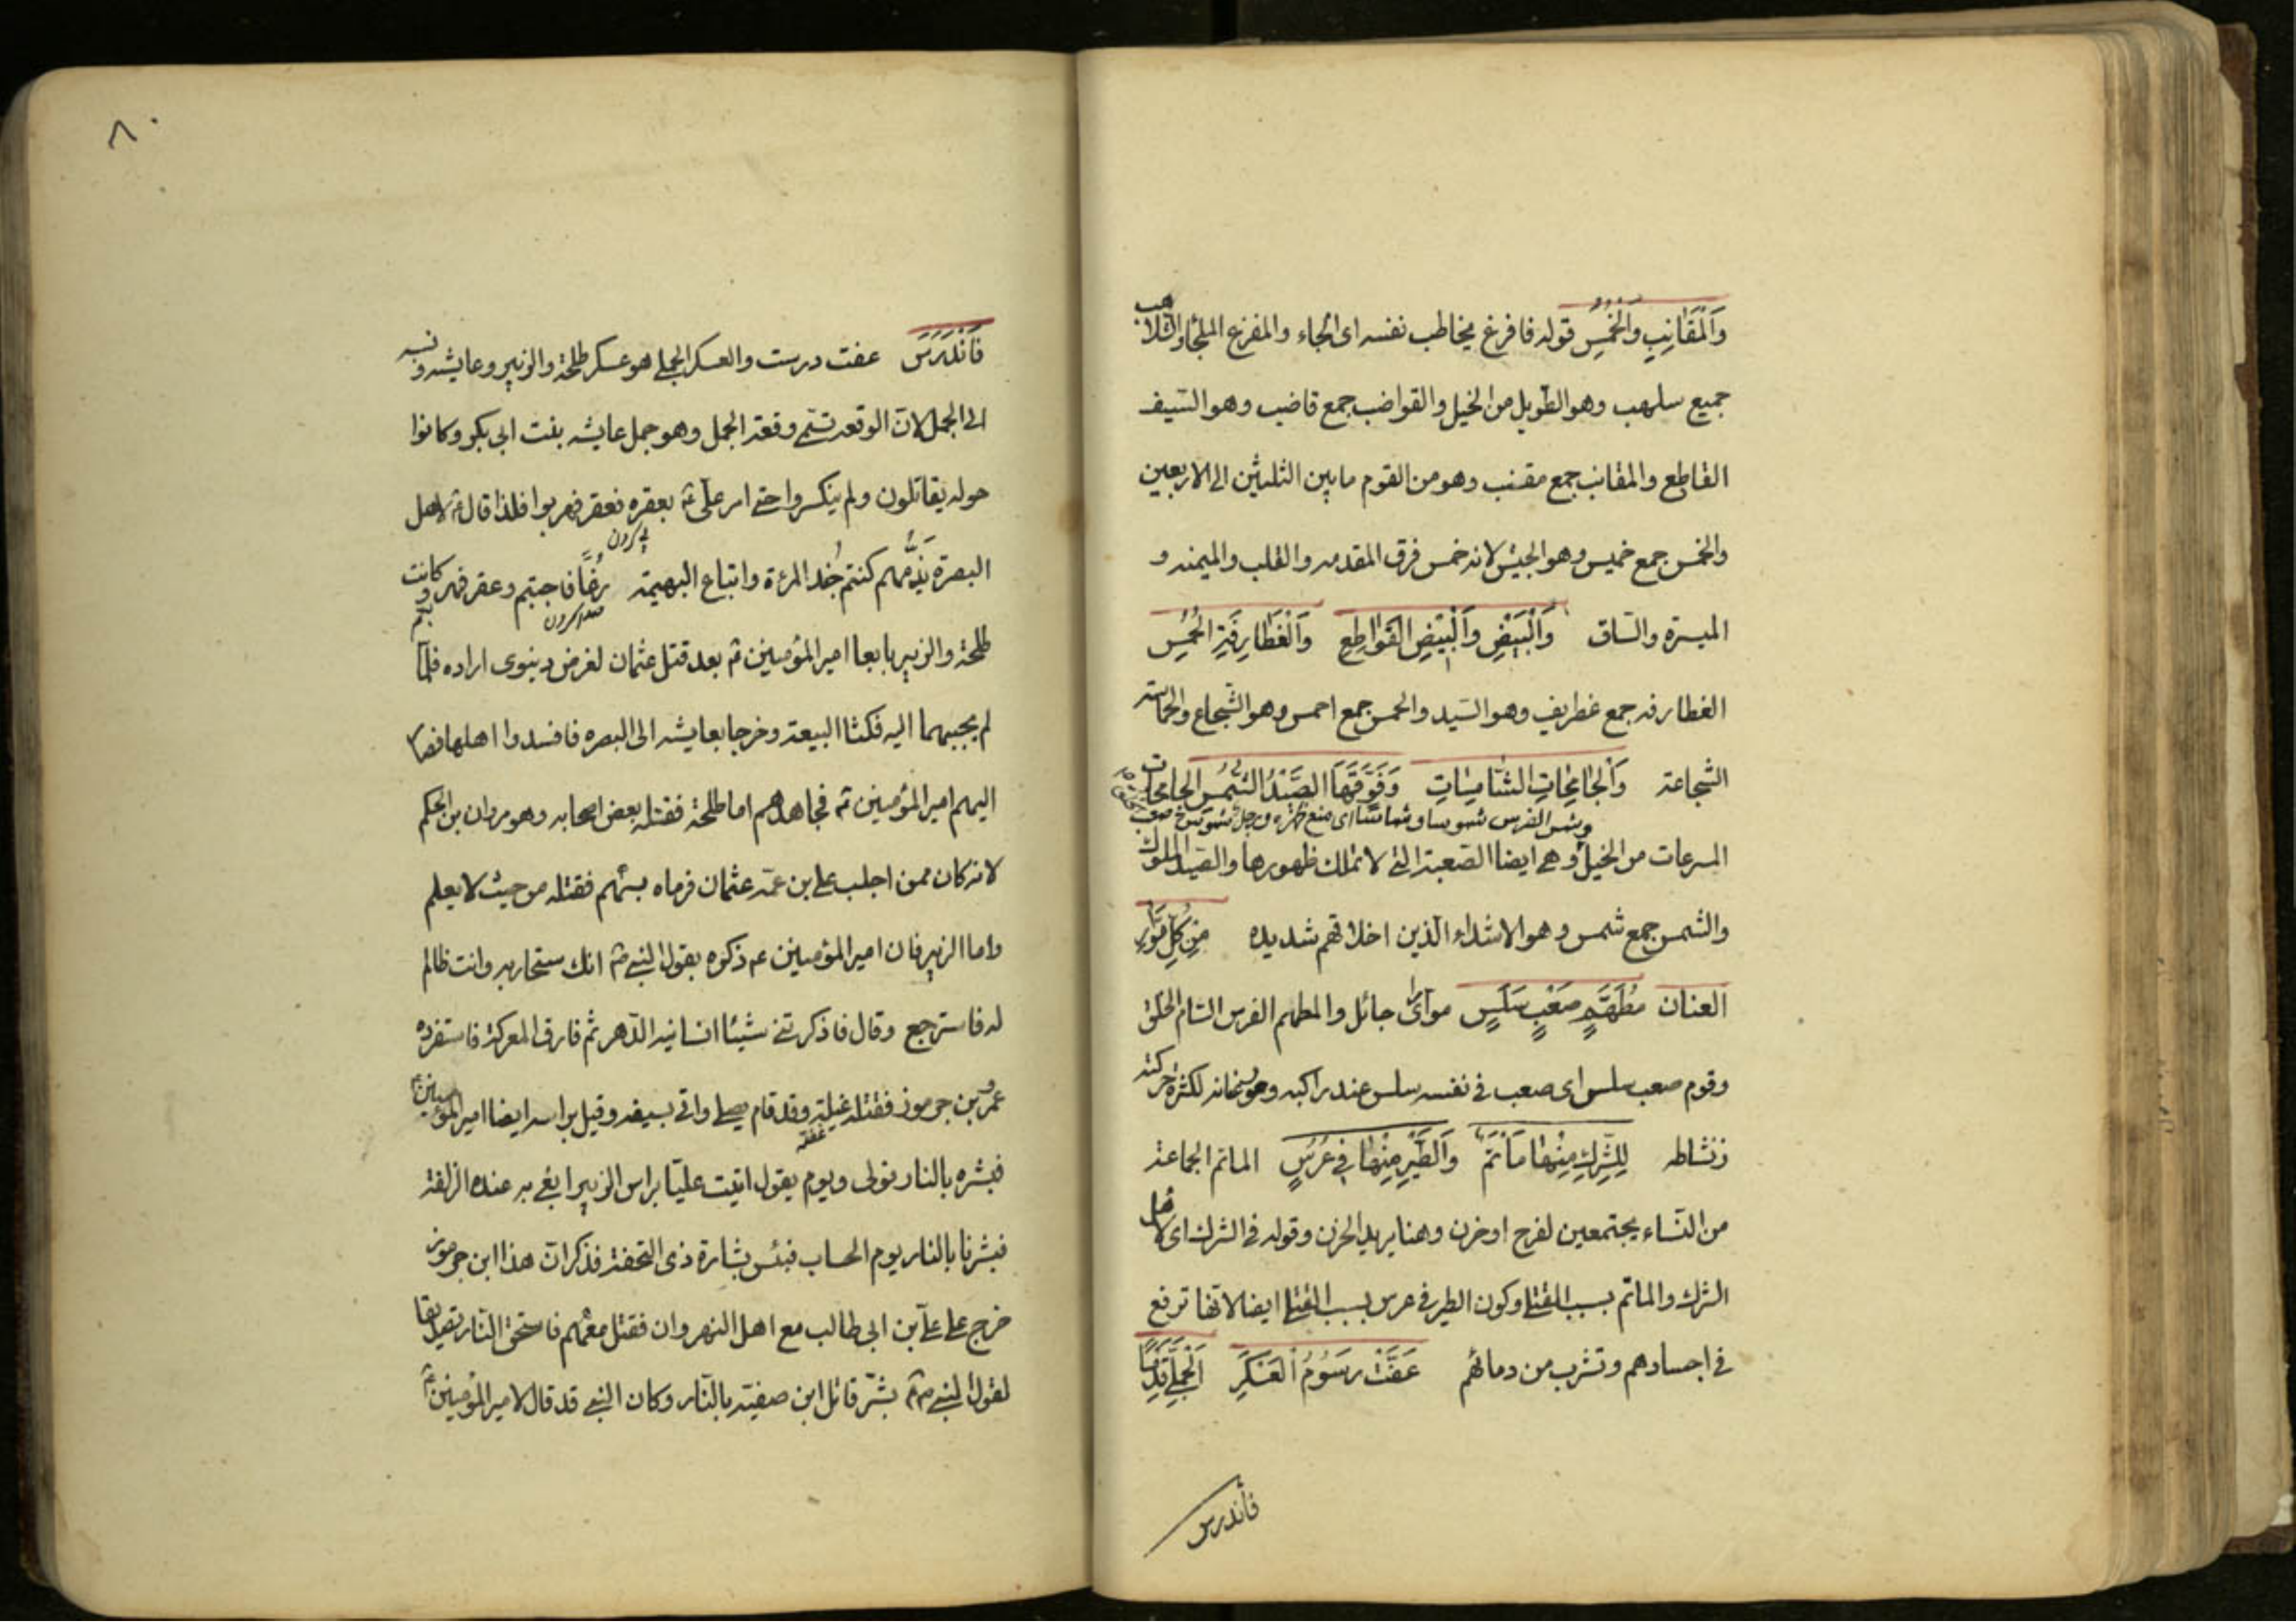 وَالْمَقَانِبِ وَالْخُمُسِ قوله فافزع يخاطب نفسه اى الجاء والمفزع الملجأ والسلاهب
جميع سلهب وهو الطويل من الخيل والقواضب جمع قاضب وهو السّيف
القاطع والمقانب جمع مقنب وهو من القوم ما بين الثلثين الى الاربعين
والخمس جمع خميس وهو الجيش لانه خمس فرق المقدمه والقلب والميمنه و
الميسرة والسّاق وَالْبَيْضِ وَالْبِيْضِ القَوَاطِعِ وَالْغَطَارِفَةِ الحُمُسِ
الغطارفه جمع غطريف وهو السّيد والحمس جمع احمس وهو الشّجاع والحماسته
الشّجاعة وَالجَامِحَاتِ الشَّامِسَاتِ وَفَوْقَهَا الصِّيْدُ الشُّمُسُ الجامحات
وشمس الفرس شموسا وشماسا اى منع ظهره ورجل شموس صعب
المسرعات من الخيل وهى ايضا الصّعبة التى لا تملك ظهورها والصّيد الملوك
والشمس جمع شمس وهو الاشداء الّذين اخلاقهم شديده مِنْ كُلِّ مَوَّارِ
العنان مُطَهَّمٍ صَعْبٍ سَلَسٍ موار اى جائل والمطهم الفرس التام الخلق
وقوم صعب سلس اى صعب فى نفسه سلس عند راكبه لكثرة حركته
ونشاطه لِلشِّرْكِ مِنْهَا مَأتَمٌ وَالطَّيْرِ مِنْهَا فِى عُرُسٍ الماتم الجماعة
من النّساء يجتمعين لفرح او حزن وهنا يريد الحزن وقوله فى الشرك اى لاهل
الشرك والماتم بسبب القتلى وكون الطير فى عرس بسبب القتلى ايضا لانّها ترفع
فى اجسادهم وتشرب من دمائهم عَفَتْ رُسُوْمُ العَسْكَرِ الْجَمَلِىِّ قِدْمًا
فأندرس
٨٠
فَانْدَرَسَ عفت درست والعسكر الجملى هو عسكر طلحة والزبير وعايشه ونسبه
الى الجمل لانّ الوقعه تسمّى وقعة الجمل وهو جمل عايشه بنت ابى بكر وكانوا
حوله يقاتلون ولم ينكسروا حتى امر علىّ بعقره فعقر فهربوا فلذا قال لاهل
البصرة يذمّهم كنتم جند المرءة واتباع البهيمة رغا فاجبتم وعقر فهربتم وكانت
طلحة والزبير بايعا امير المؤمنين بعد قتل عثمان لغرض دينوى اراده فلمّا
لم يجبهما اليه فنكثا البيعة وخرجا بعايشه الى البصره فافسدوا اهلها فصار
اليهم امير المؤمنين فجاهدهم اما طلحة فقتله بعض اصحابه وهو مروان بن الحكم
لانه كان ممن اجلب على بن عمّه عثمان فرماه بسهم فقتله من حيث لا يعلم
واما الزبير فان امير المؤمنين ع ذكره بقول النبى انك ستحاربه وانت ظالم
له فاسترجع وقال فاذكرتنى شيئا انسانيه الدّهر ثم فارق المعركة فاستفرده
عمرو بن جرموز فقتله غيلة وقد قام يصلى واتى بسيفه وقيل براسه ايضا امير المؤمنين
فبشره بالنار فولى ويوم يقول اتيت عليّا براس الزبير ابغى به عنده الزلفة
فبشرنا بالنار يوم الحساب فبئس بشارة ذى التحفة فذكر انّ هذا ابن جرموز
خرج على علىّ بن ابى طالب مع اهل النهروان فقتل معهم فاستحق النّار تصديقا
لقول النبى بشّر قاتل ابن صفيّه بالنّار وكان النبى قد قال لامير المؤمنين